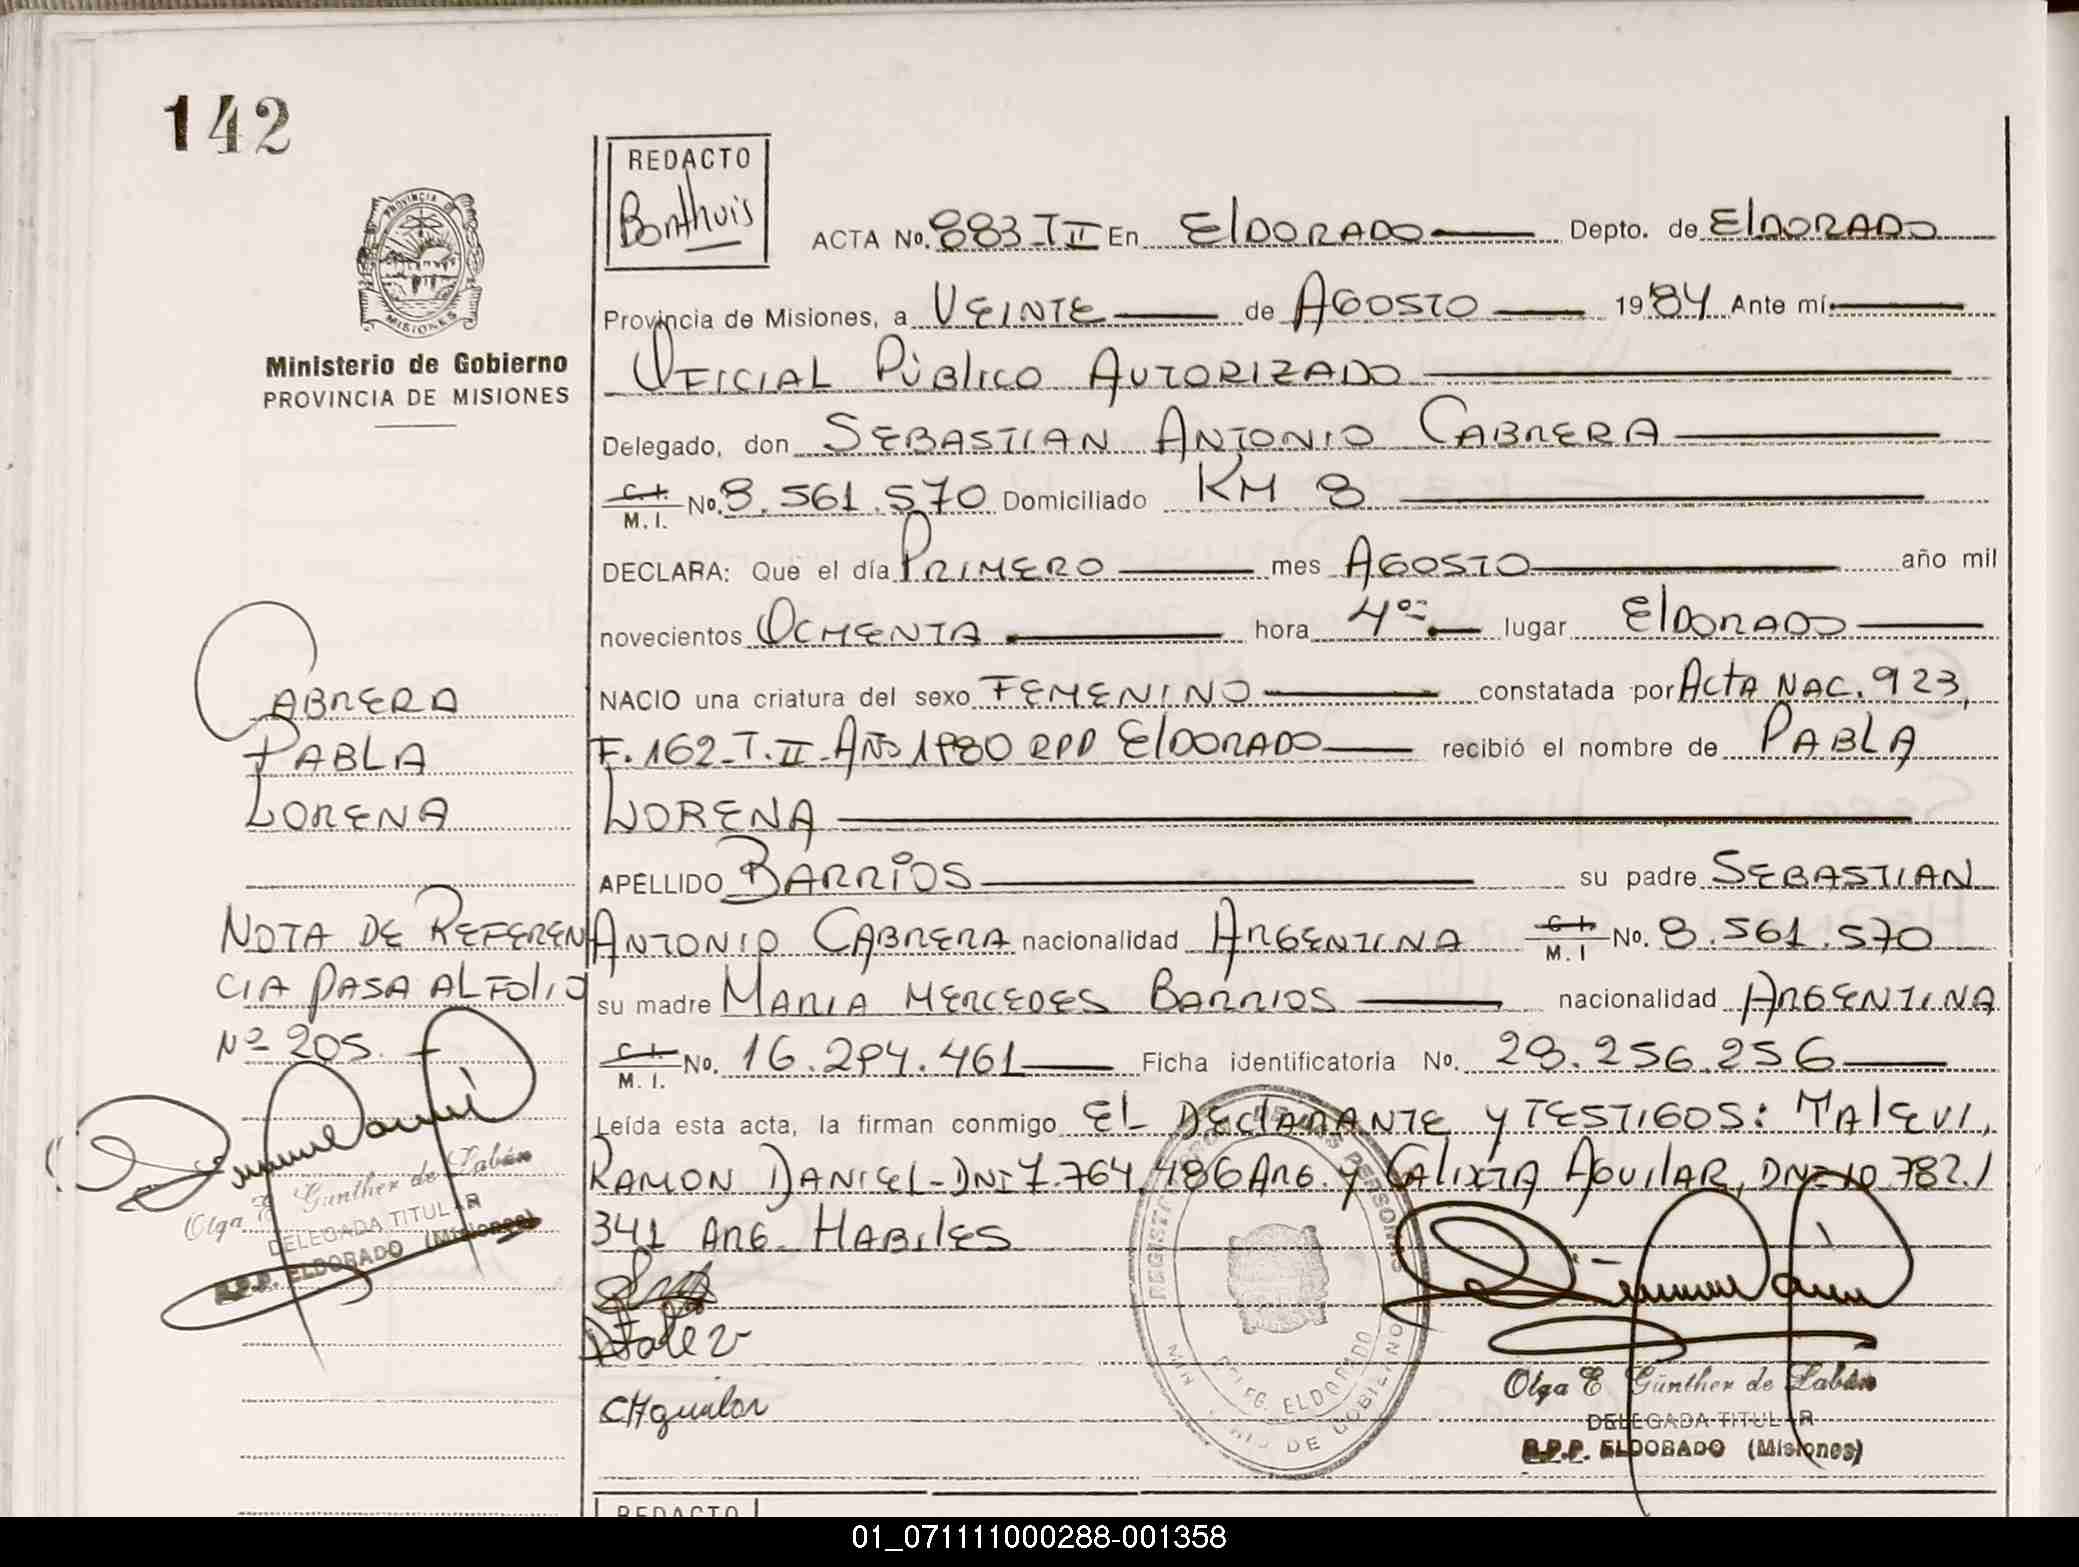 142
REDACTO
Bonthuis
PROVINCIA DE
MISIONES
Ministerio de Gobierno
PROVINCIA DE MISIONES
ACTA No. 883 T II En ElDORADO Depto. de ElDORADO
Provincia de Misiones, a VEINTE de AGOSTO 1984 Ante mí
OFICIAL PÚBLICO AUTORIZADO
Delegado, don SEBASTIAN ANTONIO CABRERA
C.I. M.I. No. 8.561.570 Domiciliado KM 8
DECLARA: Que el día PRIMERO mes AGOSTO año mil
novecientos OCHENTA hora 4 lugar ElDORADO
NACIO una criatura del sexo FEMENINO constatada por ACTA NAC. 923,
F. 162-T. II-AÑO 1980 RPP ElDORADO recibió el nombre de PABLA
LORENA
APELLIDO BARRIOS su padre SEBASTIAN
ANTONIO CABRERA nacionalidad ARGENTINA C.I. M.I No. 8.561.570
su madre MARIA MERCEDES BARRIOS nacionalidad ARGENTINA
C.I. M.I. No. 16.294.461 Ficha identificatoria No. 28.256.256
Leída esta acta, la firman conmigo EL DEClARANTE y TESTIGOS:
RAMON DANIEL-DNI 7.764.486 ARG. y CAlIXTA AGUIlAR, DNI 10.782./
341 ARG. HABIlES
CAguilar
CABRERA
PABLA
LORENA
NOTA DE REFEREN
CIA PASA AL FOlIO
Nº 205.
Olga E Günther de Labán
DELEGADA TITULAR
R.P.P. ELDORADO (Misiones)
DELEG. ELDORADO
Olga E Günther de Labán
DELEGADA TITULAR
R.P.P. ELDORADO (Misiones)
REDACTO
01_071111000288-001358